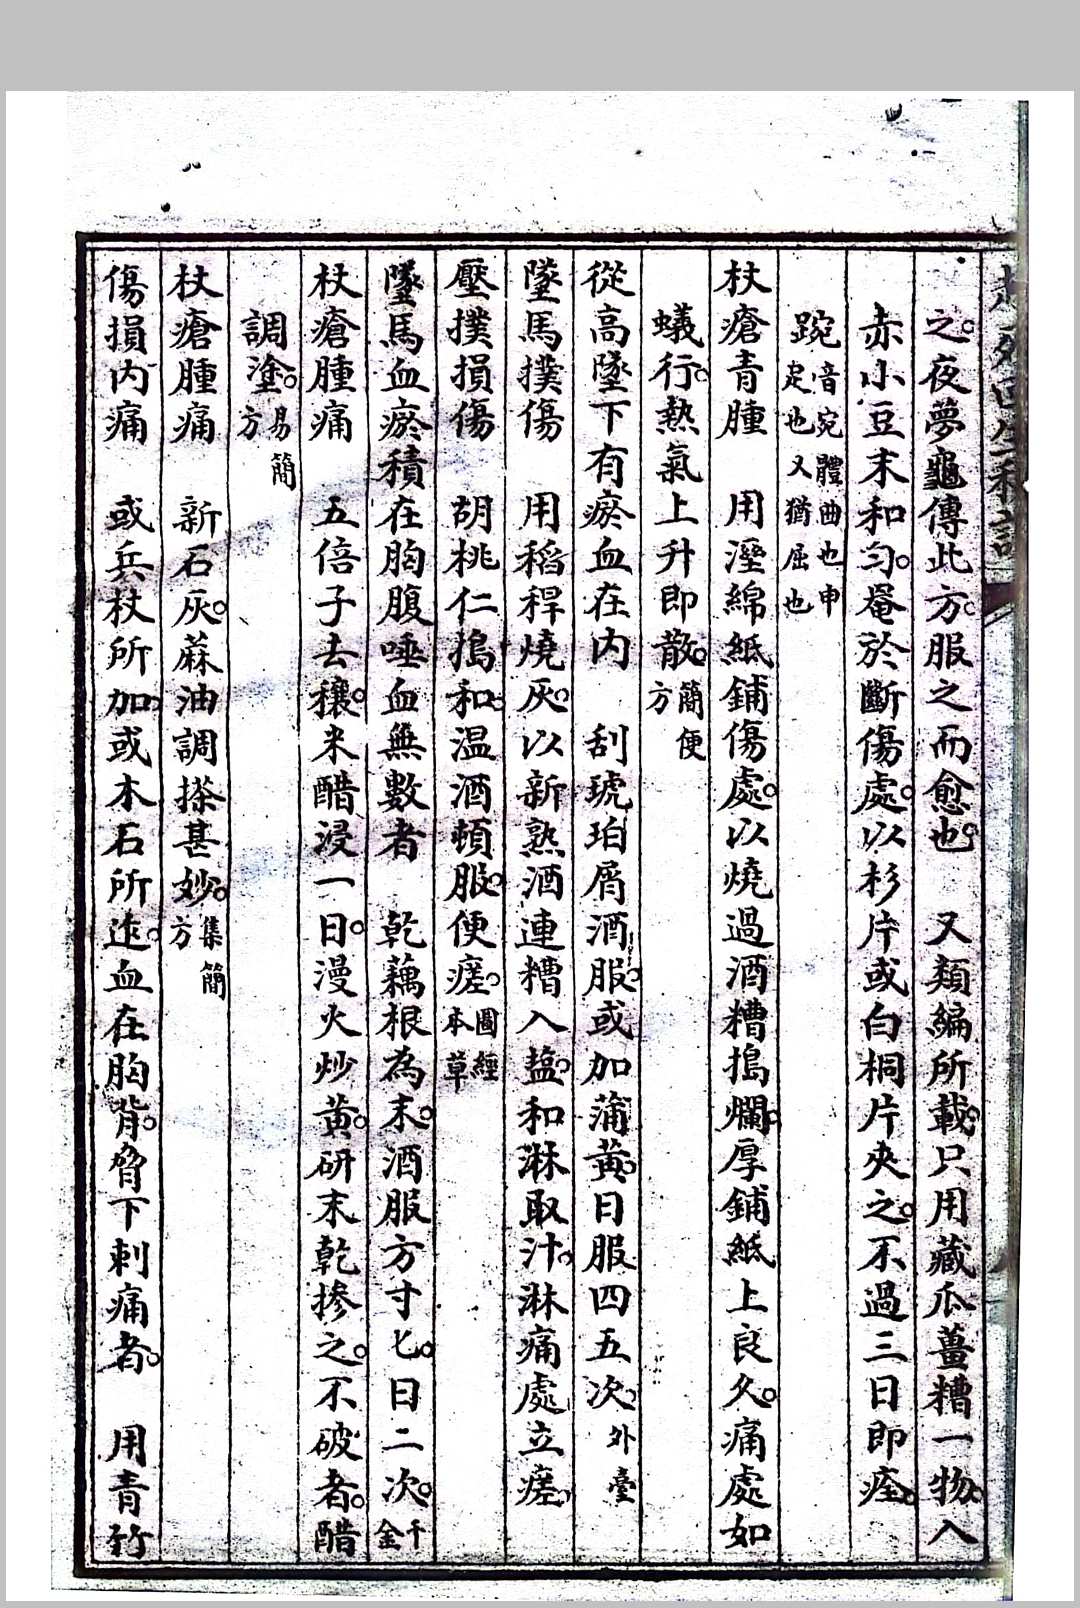 之夜夢龜傳此方服之而愈也　又類編所載只用藏瓜薑糟一物入
赤小豆末和勻罨於斷傷處以杉片或白桐片夾之不過三日即痊
踠音宛體曲也申㞐也又猶屈也
杖瘡青腫　用溼綿紙鋪傷處以燒過酒糟搗爛厚鋪紙上良久痛處如
蟻行熱氣上升即散簡便方
從高墜下有瘀血在内　刮琥珀屑酒服或加蒲黃日服四五次外臺
墜馬撲傷　用稻稈燒灰以新熟酒連糟入鹽和淋取汁淋痛處立瘥
壓撲損傷　胡桃仁搗和温酒頓服便瘥圖經本草
墜馬血瘀積在胸腹唾血無數者　乾藕根為末酒服方寸匕日二次千金
杖瘡腫痛　五倍子去穰米醋浸一日漫火炒黃研末乾摻之不破者醋
調塗易簡方
杖瘡腫痛　新石灰蔴油調搽甚妙集簡方
傷損内痛　或兵杖所加或木石所迮血在胸背脅下刺痛者　用青竹